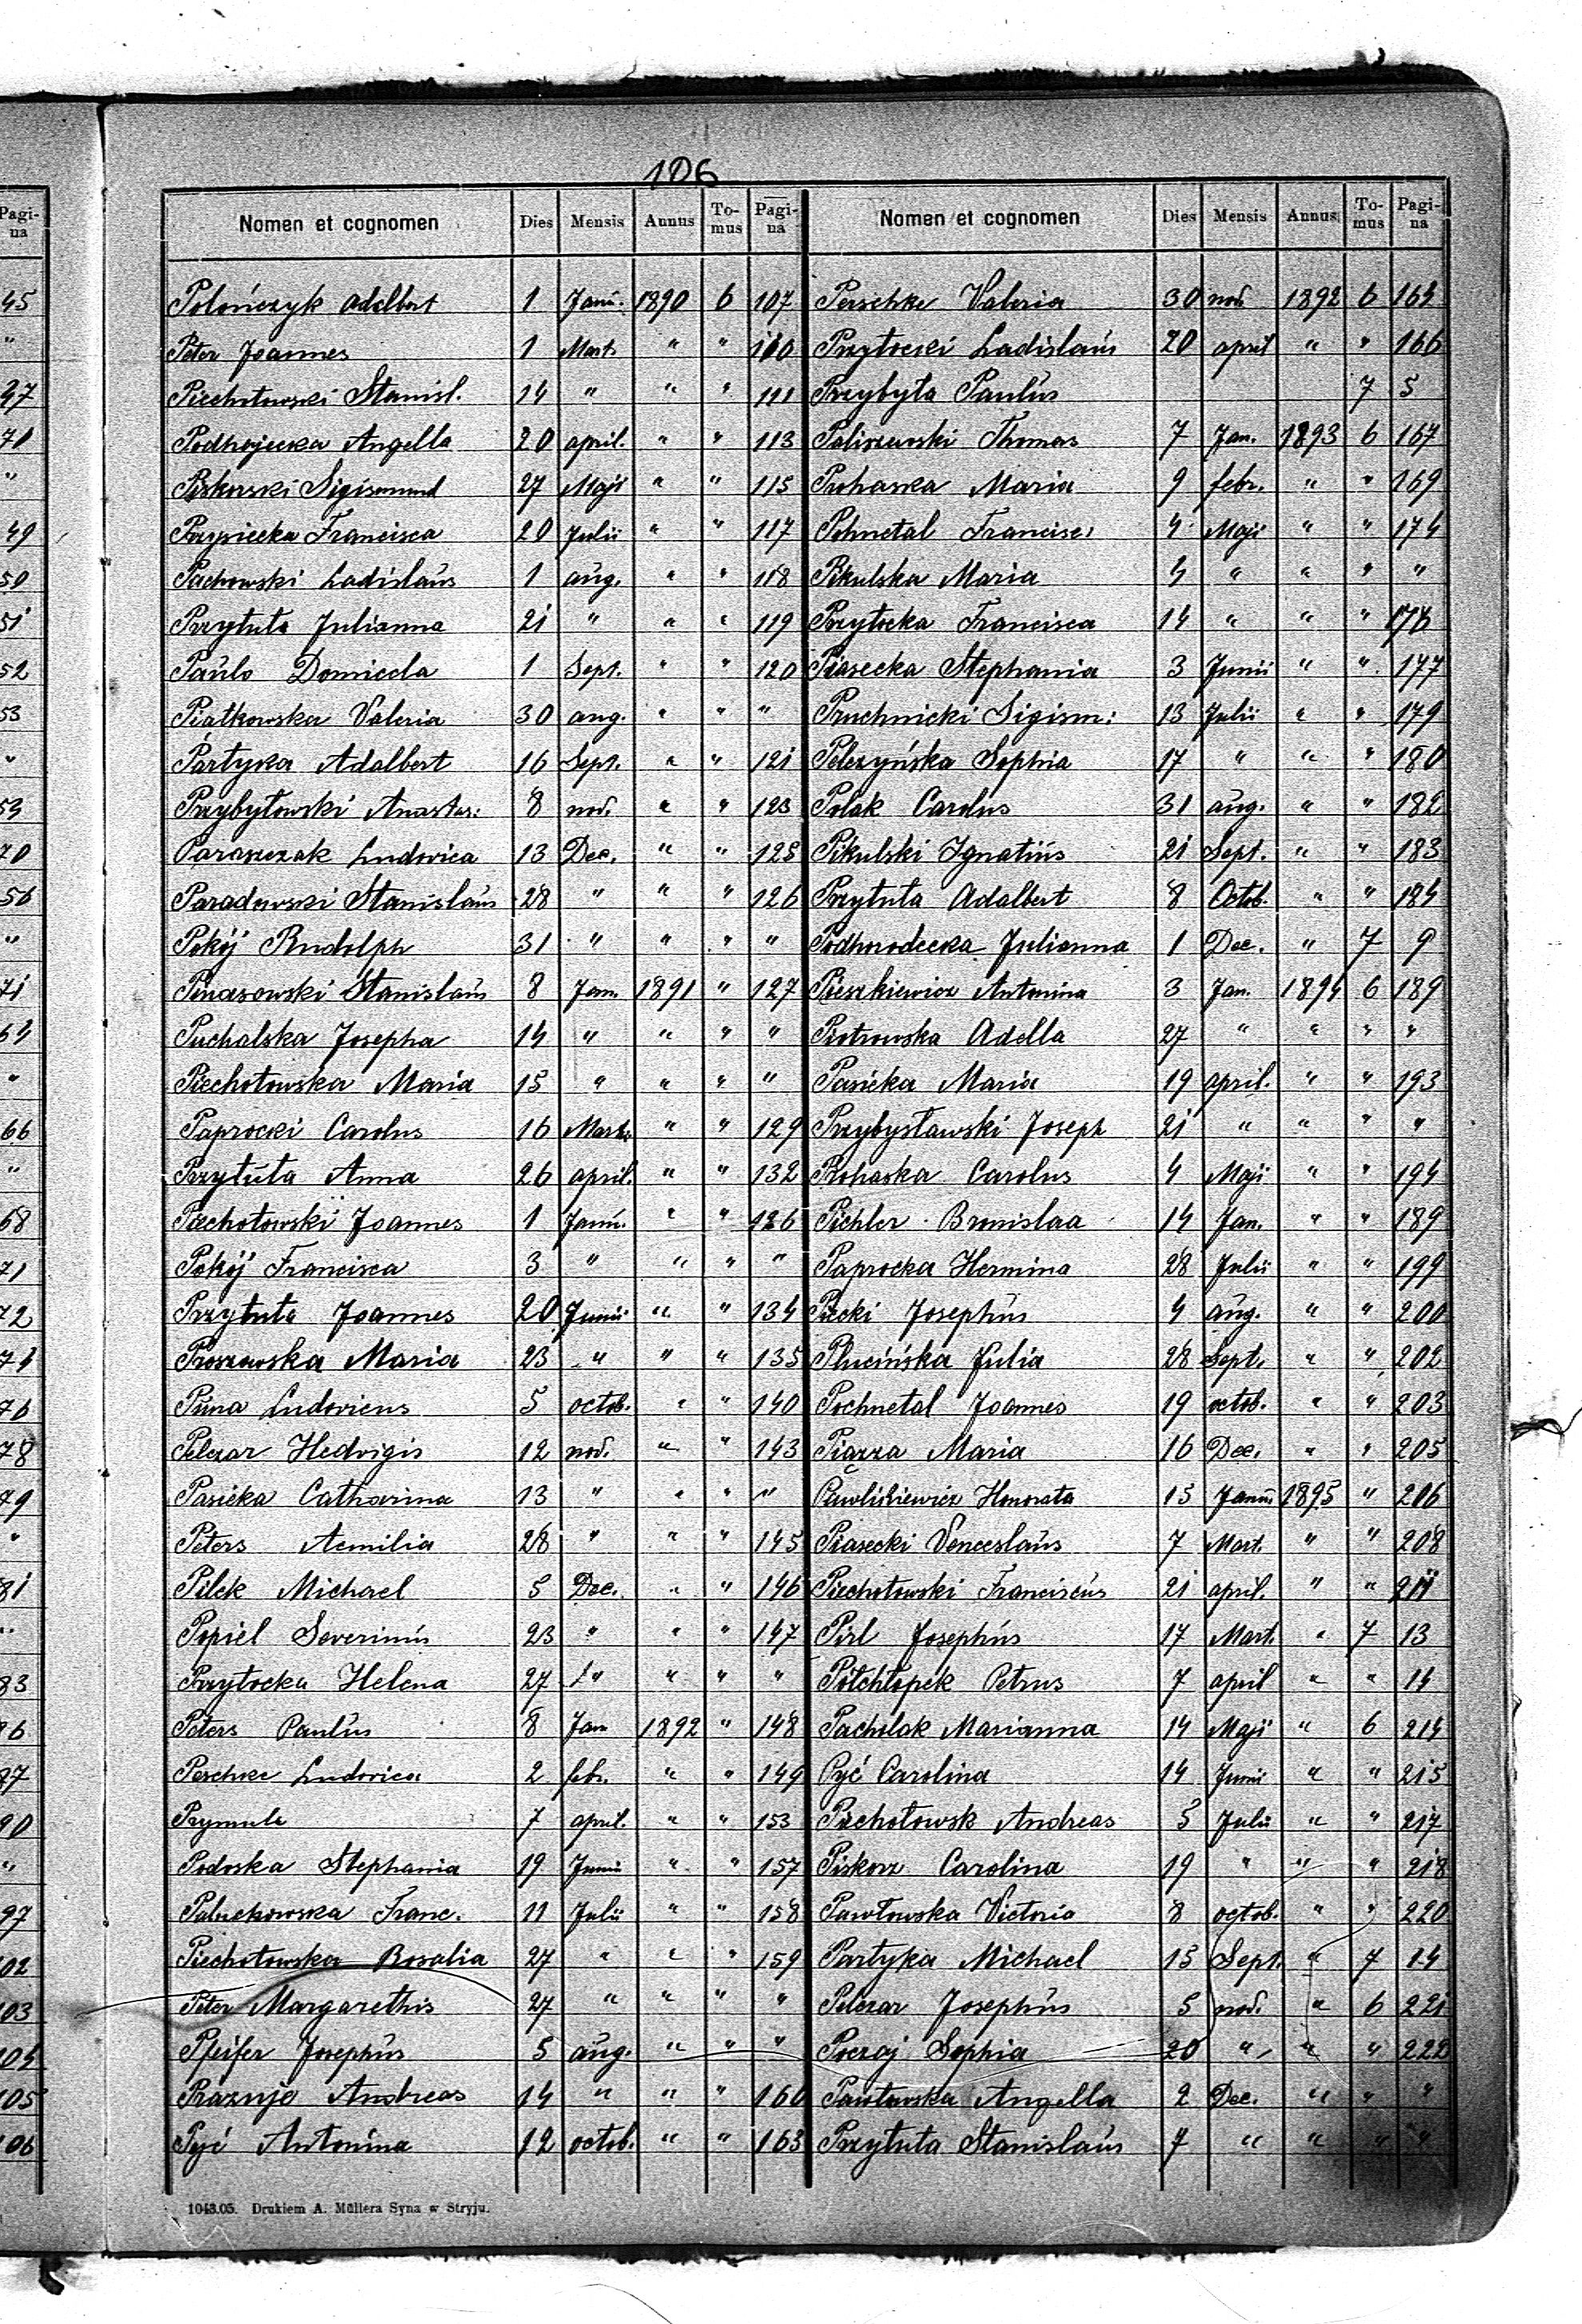 106
Pagi-
na
45
"
47
71
"
49
50
51
52
53
"
53
70
56
"
71
64
"
66
"
68
71
72
74
76
78
79
"
81
"
83
86
87
90
"
97
102
103
104
105
106
Nomen et cognomen Dies Mensis Annus To-mus Pagi-na
Polończyk Adalbert 1 Janu. 1890 6 107
Peter Joannes 1 Mart. " " 110
Piechotowski Stanisl. 14 " " " 111
Podhojecka Angella 20 april. " " 113
Piskorski Sigismund 27 Maji " " 115
Przysiecka Francisca 20 Julii " " 117
Pachowski Ladislaus 1 aug. " " 118
Przytuta Julianna 21 " " " 119
Paulo Domicela 1 Sept. " " 120
Piatkowska Valeria 30 aug. " " "
Partyka Adalbert 16 Sept. " " 121
Przybyłowski Anastas: 8 nov. " " 123
Paraszczak Ludovica 13 Dec. " " 125
Paradowski Stanislaus 28 " " " 126
Pokój Rudolph 31 " " " "
Ponasowski Stanislaus 8 Jan. 1891 " 127
Puchalska Josepha 14 " " " "
Piechotowska Maria 15 " " " "
Paprocki Carolus 16 Mart. " " 129
Przytuta Anna 26 april. " " 132
Piechotowski Joannes 1 Janu. " " 126
Pokój Francisca 3 " " " "
Przytuta Joannes 20 Junii " " 134
Proszowska Maria 23 " " " 135
Puna Ludovicus 5 octob. " " 140
Pelczar Hedvigis 12 nov. " " 143
Pasieka Catharina 13 " " " "
Peters Aemilia 28 " " " 145
Pilek Michael 5 Dec. " " 146
Popiel Severinus 23 " " " 147
Przytocka Helena 27 " " " "
Peters Paulus 8 Jan 1892 " 148
Peschke Ludovica 2 febr. " " 149
Prymula 7 april. " " 153
Podoska Stephania 19 Junii " " 157
Paluchowska Franc. 11 Julii " " 158
Piechotowska Rosalia 27 " " " 159
Peter Margarethis 27 " " " "
Pfeifer Josephus 5 aug. " " "
Praznyo Andreas 14 " " " 160
Pyć Antonina 12 octob. " " 163
Nomen et cognomen Dies Mensis Annus To-mus Pagi-na
Perschke Valeria 30 nov. 1892 6 164
Przytocki Ladislaus 20 april " " 166
Przybyta Paulus 7 5
Paliszewski Thomas 7 Jan. 1893 6 167
Prohaska Maria 9 febr. " " 169
Pohnetal Francisc: 4 Maji " " 174
Pikulska Maria 4 " " " "
Przytocka Francisca 14 " " " 176
Piasecka Stephania 3 Junii " " 177
Pruchnicki Sigism: 13 Julii " " 179
Pelczyńska Sophia 17 " " " 180
Polak Carolus 31 aug. " " 182
Pikulski Ignatius 21 Sept. " " 183
Przytuta Adalbert 8 Octob. " " 184
Podhorodecka Julianna 1 Dec. " 7 9
Pieszkiewicz Antonina 3 Jan. 1894 6 189
Piotrowska Adella 27 " " " "
Pasieka Maria 19 april. " " 193
Przybysławski Joseph 21 " " " "
Prohaska Carolus 4 Maji " " 194
Pichler Bronislaa 14 Jan. " " 189
Paprocka Hermina 28 Julii " " 199
Piecki Josephus 4 aug. " " 200
Plucińska Julia 28 Sept. " " 202
Pochnetal Joannes 19 octob. " " 203
Piazza Maria 16 Dec. " " 205
Pawlikiewicz Honorata 15 Janu 1895 " 206
Piasecki Venceslaus 7 Mart. " " 208
Piechotowski Franciscus 21 april. " " 211
Pirl Josephus 17 Mart. " 7 13
Pótchłopek Petrus 7 april " " 14
Pacholak Marianna 14 Maji " 6 214
Pyć Carolina 14 Junii " " 215
Piechotowsk Andreas 5 Julii " " 217
Piskorz Carolina 19 " " " 218
Pawłowska Victoria 8 octob. " " 220
Partyka Michael 15 Sept. " 7 14
Pelczar Josephus 5 nov. " 6 221
Poczaj Sophia 20 " " " 222
Pawłowska Angella 2 Dec. " " "
Przytuta Stanislaus 7 " " " "
1043.05. Drukiem A. Müllera Syna w Stryju.